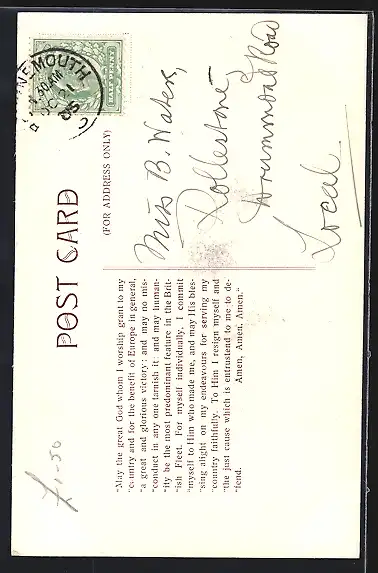 POST CARD
(FOR ADDRESS ONLY)
HALFPENNY
NEMOUTH
30AM
OC 21
05
Miss B. Waters,
Rollestone
Drummond Road
Local
"May the great God whom I worship grant to my
"country and for the benefit of Europe in general,
"a great and glorious victory: and may no mis-
"conduct in any one tarnish it: and may human-
"ity be the most predominant feature in the Brit-
"ish Fleet. For myself individually, I commit
"myself to Him who made me, and may His bles-
"sing alight on my endeavours for serving my
"country faithfully. To Him I resign myself and
"the just cause which is entrustend to me to de-
"fend. Amen, Amen, Amen."
£1-50